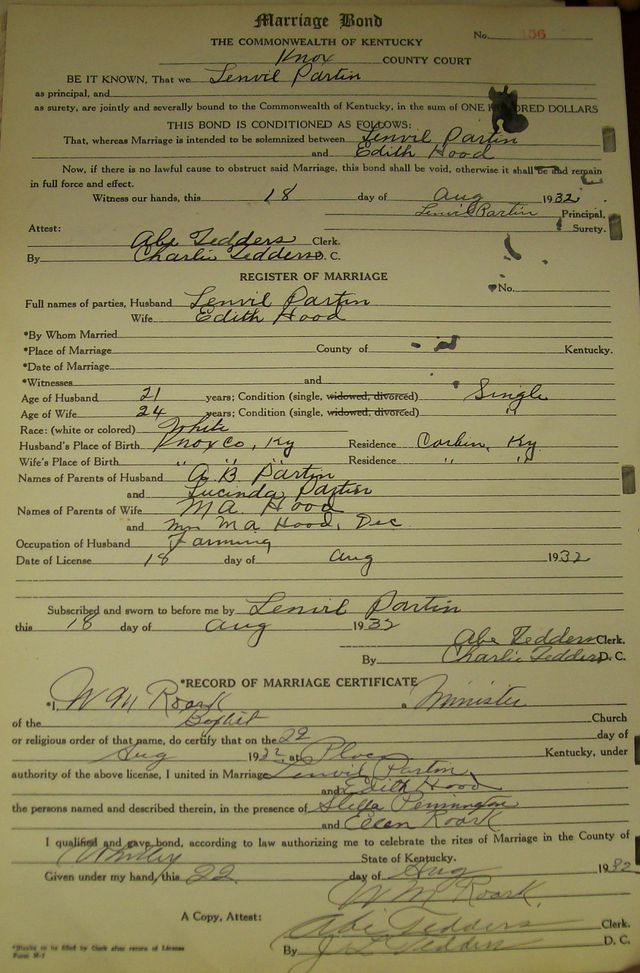 Marriage Bond
No. 156
THE COMMONWEALTH OF KENTUCKY
Knox COUNTY COURT
BE IT KNOWN, That we Lenvil Partin
as principal, and
as surety, are jointly and severally bound to the Commonwealth of Kentucky, in the sum of ONE HUNDRED DOLLARS
THIS BOND IS CONDITIONED AS FOLLOWS:
That, whereas Marriage is intended to be solemnized between Lenvil Partin
and Edith Hood
Now, if there is no lawful cause to obstruct said Marriage, this bond shall be void, otherwise it shall be and remain
in full force and effect.
Witness our hands, this 18 day of Aug 1932
Lenvil Partin Principal.
Surety.
Attest:
Abe Tedders Clerk.
By Charlie Tedders D. C.
REGISTER OF MARRIAGE
No.
Full names of parties, Husband Lenvil Partin
Wife Edith Hood
*By Whom Married
*Place of Marriage County of Kentucky.
*Date of Marriage
*Witnesses and
Age of Husband 21 years; Condition (single, widowed, divorced) Single
Age of Wife 24 years; Condition (single, widowed, divorced) "
Race: (white or colored) White
Husband's Place of Birth Knox Co, Ky Residence Corbin, Ky
Wife's Place of Birth " " " Residence " "
Names of Parents of Husband A B Partin
and Lucinda Partin
Names of Parents of Wife M A Hood
and Mrs M a Hood, Dec
Occupation of Husband Farming
Date of License 18 day of Aug 1932
Subscribed and sworn to before me by Lenvil Partin
this 18 day of Aug 1932
Abe Tedders Clerk.
By Charlie Tedders D. C.
*RECORD OF MARRIAGE CERTIFICATE
*I, W M Roark a Minister
of the Baptist Church
or religious order of that name, do certify that on the 22 day of
Aug 1932 at Kentucky, under
authority of the above license, I united in Marriage Lenvil Partin
and Edith Hood
the persons named and described therein, in the presence of Stella Pennington
and Ellen Roark
I qualified and gave bond, according to law authorizing me to celebrate the rites of Marriage in the County of
Whitley State of Kentucky.
Given under my hand, this 22 day of Aug 1932
W M Roark.
A Copy, Attest: Abe Tedders Clerk.
By J L Tedders D. C.
*Blanks to be filled by Clerk after return of License